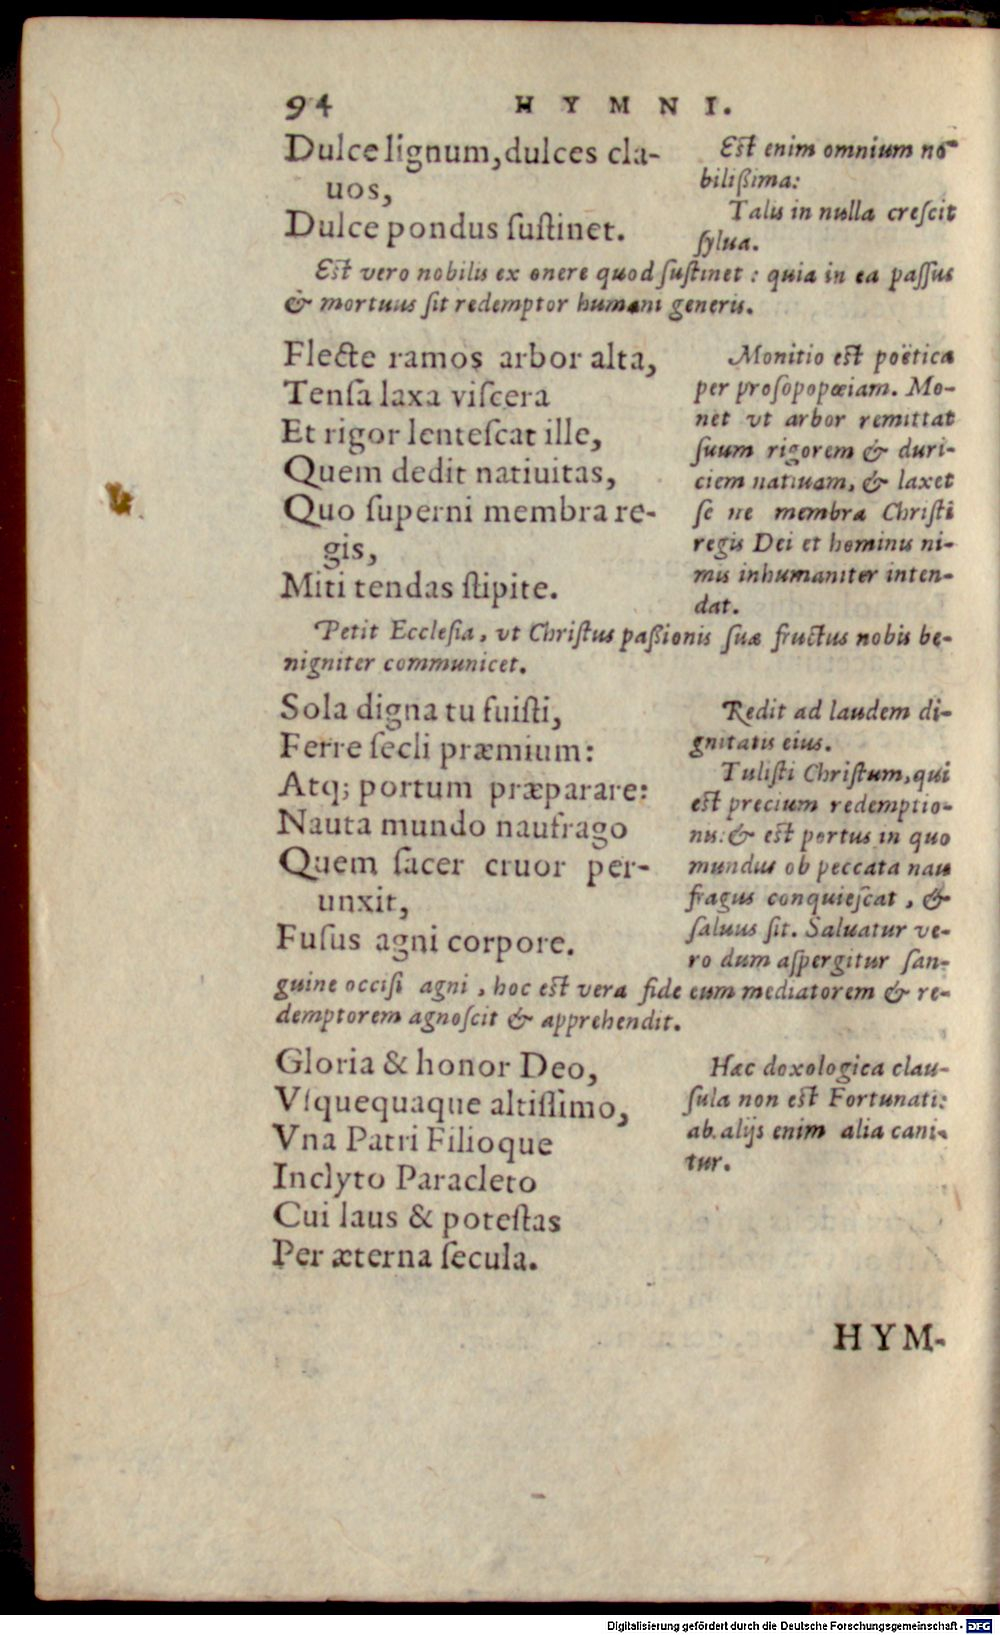 94 HYMNI.
Dulce lignum, dulces cla-
uos,
Dulce pondus ſuſtinet.
Eſt enim omnium no-
bilißima:
Talis in nulla creſcit
ſylua.
Eſt vero nobilis ex onere quod ſuſtinet : quia in ea paſſus
& mortuus ſit redemptor humani generis.
Flecte ramos arbor alta,
Tenſa laxa viſcera
Et rigor lenteſcat ille,
Quem dedit natiuitas,
Quo ſuperni membra re-
gis,
Miti tendas ſtipite.
Monitio eſt poëtica
per proſopopœiam. Mo-
net vt arbor remittat
ſuum rigorem & duri-
ciem natiuam, & laxet
ſe ne membra Chriſti
regis Dei et hominis ni-
mis inhumaniter inten-
dat.
Petit Eccleſia, vt Chriſtus paßionis ſuæ fructus nobis be-
nigniter communicet.
Sola digna tu fuiſti,
Ferre ſecli præmium:
Atq; portum præparare:
Nauta mundo naufrago
Quem ſacer cruor per-
unxit,
Fuſus agni corpore.
Redit ad laudem di-
gnitatis eius.
Tuliſti Chriſtum, qui
eſt precium redemptio-
nis: & eſt portus in quo
mundus ob peccata nau
fragus conquieſcat, &
ſaluus ſit. Saluatur ve-
ro dum aſpergitur ſan-
guine occiſi agni, hoc eſt vera fide eum mediatorem & re-
demptorem agnoſcit & apprehendit.
Gloria & honor Deo,
Vſquequaque altiſſimo,
Vna Patri Filioque
Inclyto Paracleto
Cui laus & poteſtas
Per æterna ſecula.
Hæc doxologica clau-
ſula non eſt Fortunati:
ab alijs enim alia cani-
tur.
HYM-
Digitalisierung gefördert durch die Deutsche Forschungsgemeinschaft - DFG